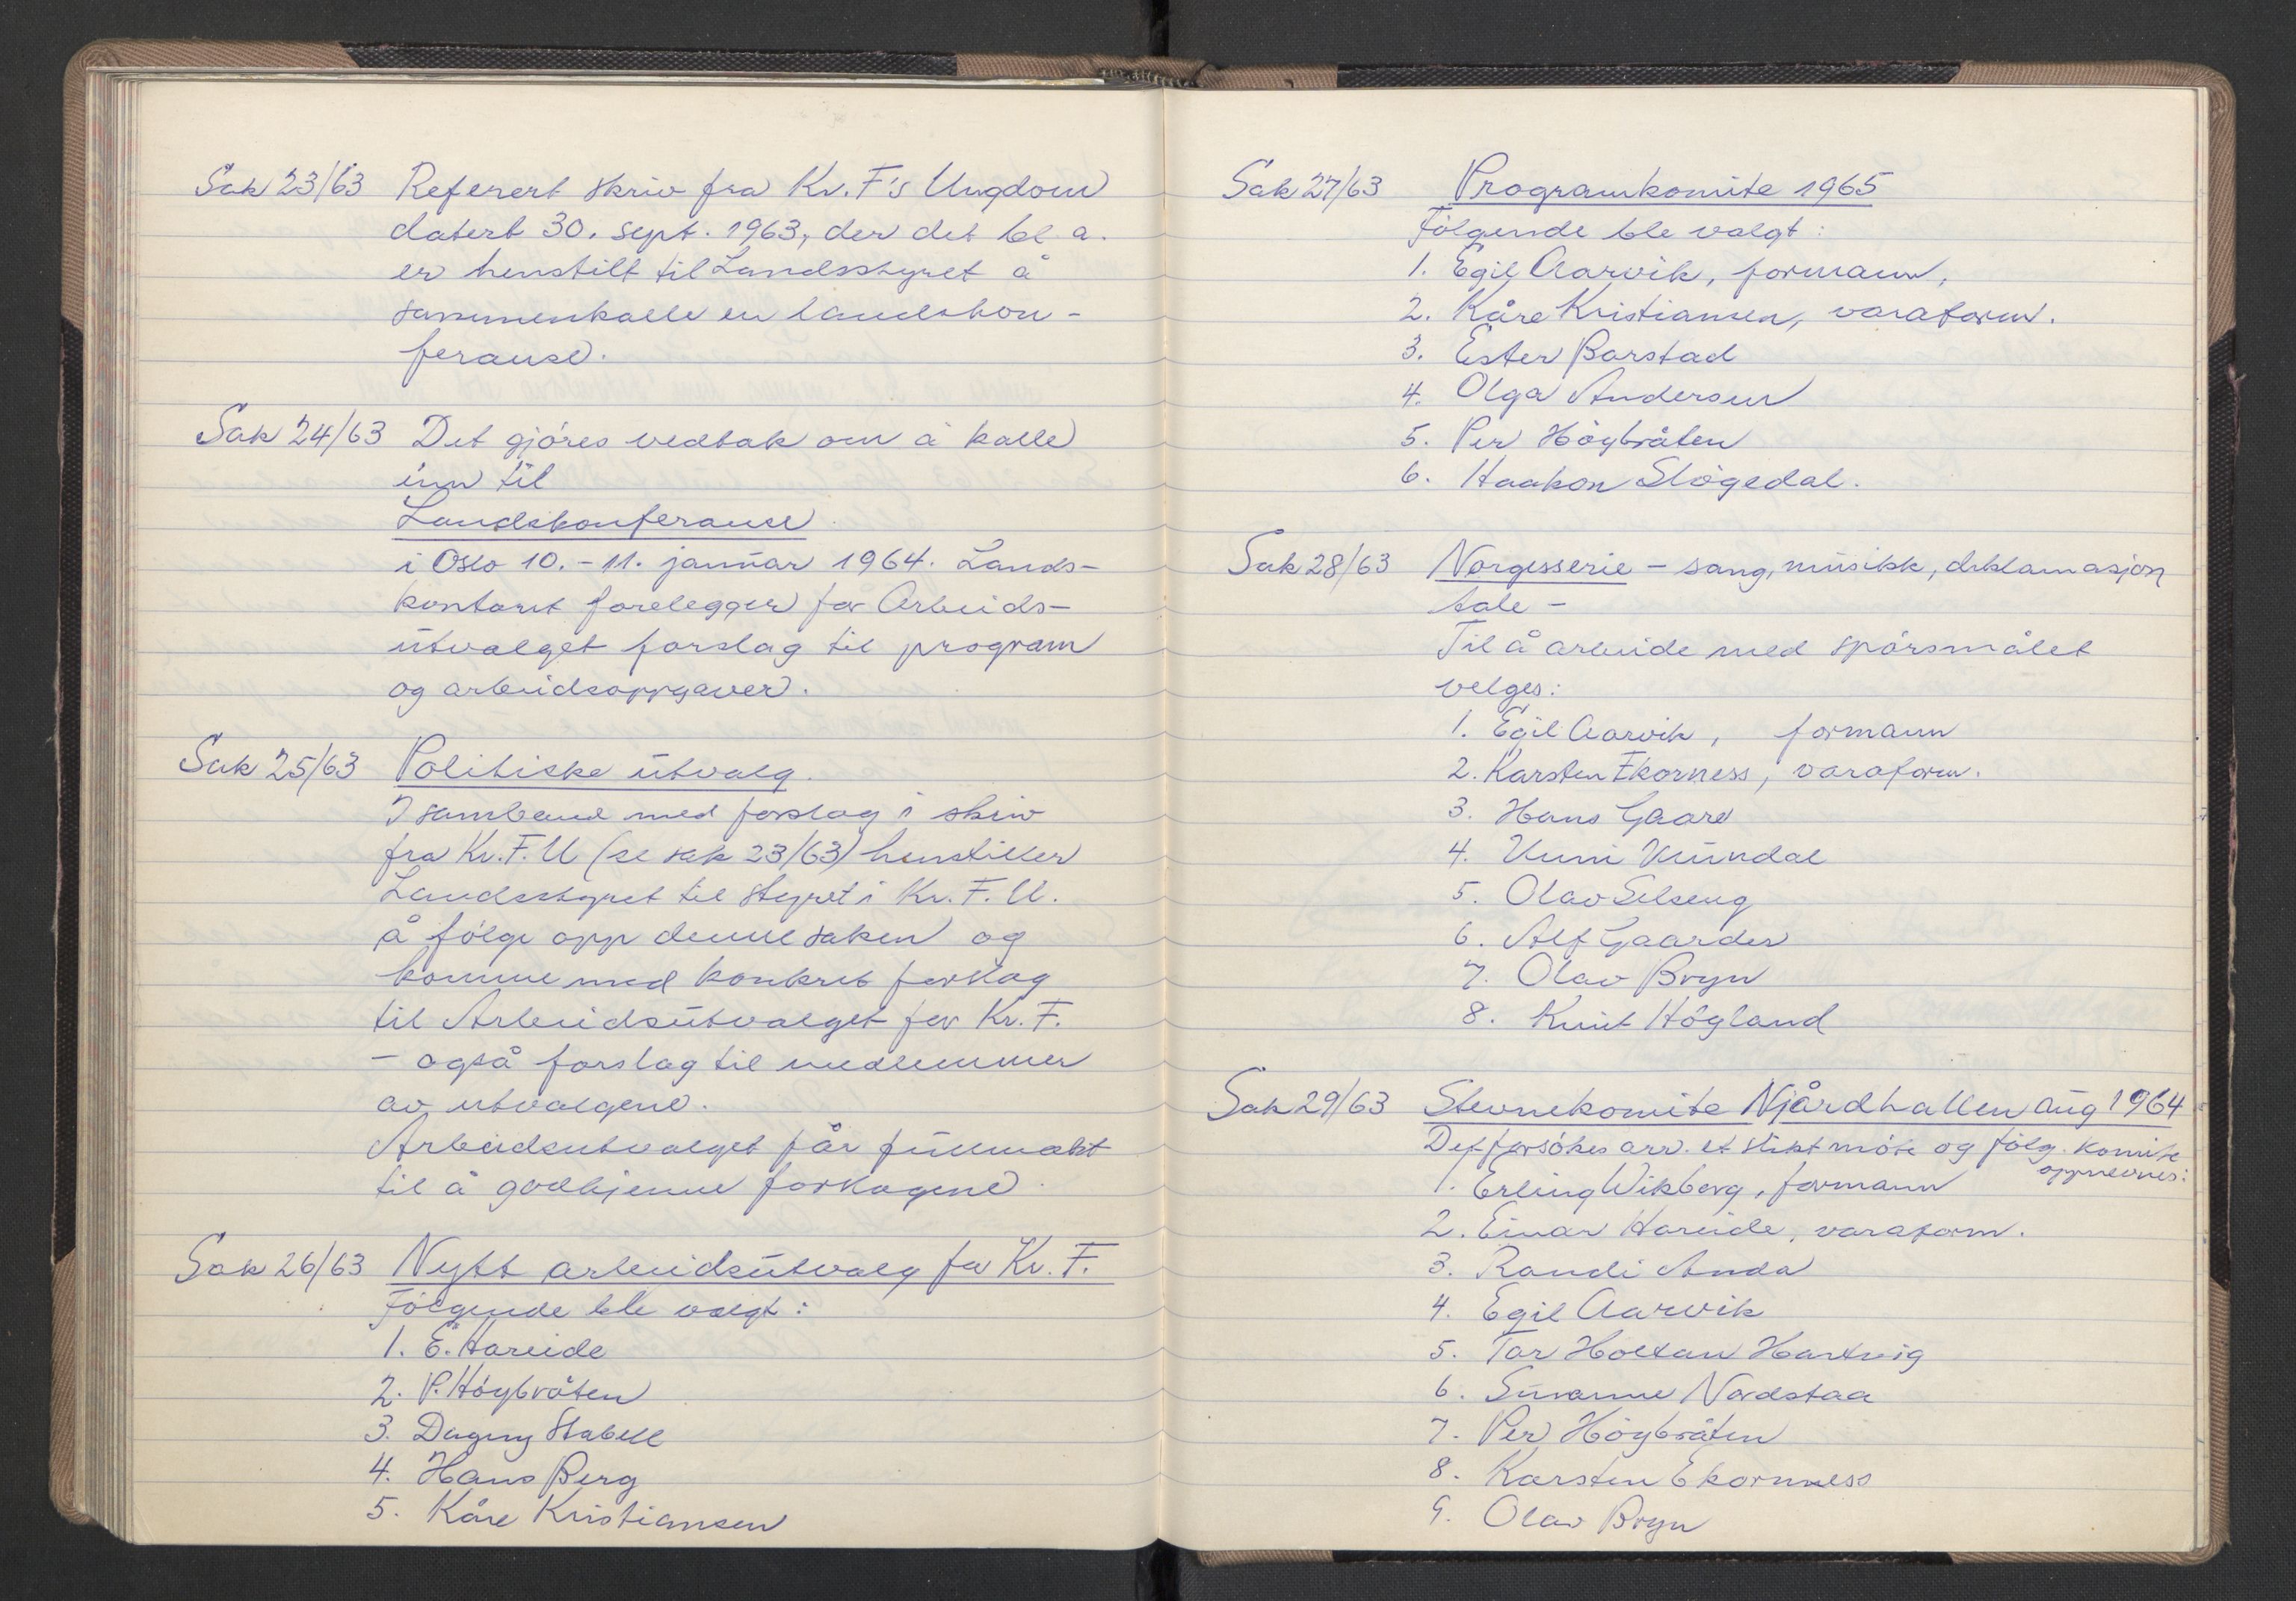 Sak 23/63 Referert skriv fra Kr. F's Ungdom
datert 30. sept. 1963, der det bl a.
er henstilt til Landsstyret å
sammenkalle en landskon-
feranse.
Sak 24/63 Det gjöres vedtak om å kalle
inn til
Landskonferanse
i Oslo 10. - 11. januar 1964. Lands-
kontoret forelegger for Arbeids-
utvalget forslag til program
og arbeidsoppgaver.
Sak 25/63 Politiske utvalg.
I samband med forslag i skriv
fra Kr. F. U (se sak 23/63) henstiller
Landsstyret til styret i Kr. F. U.
å følge opp denne saken og
komme med konkret forslag
til Arbeidsutvalget for Kr. F.
- også forslag til medlemmer
av utvalgene.
Arbeidsutvalget får fullmakt
til å godkjenne forslagene.
Sak 26/63 Nytt arbeidsutvalg for Kr. F.
Fölgende ble valgt:
1. E. Hareide
2. P. Höybråten
3. Dagny Stabell
4. Hans Berg
5. Kåre Kristiansen
Sak 27/63 Programkomite 1965
Fölgende ble valgt:
1. Egil Aarvik, formann,
2. Kåre Kristiansen, varaform.
3. Ester Barstad
4. Olga Andersen
5. Per Höybråten
6. Haakon Slögedal.
Sak 28/63 Norgesserie - sang, musikk, deklamasjon
tale -
Til å arbeide med spörsmålet
velges:
1. Egil Aarvik, formann
2. Karsten Ekorness, varaform.
3. Hans Gaare
4. Unni
5. Olav Selseng
6. Alf Gaarder
7. Olav Bryn
8. Knut Högland
Sak 29/63 Stevnekomite Njårdhallen aug 1964
Det forsökes arr. et slikt möte og fölg. komite
oppnevnes:
1. Erling Wikborg, formann
2. Einar Hareide, varaform.
3. Randi Anda
4. Egil Aarvik
5. Tor Holtan Hartwig
6. Susanne Nordstaa
7. Per Höybråten
8. Karsten Ekornness
9. Olav Bryn